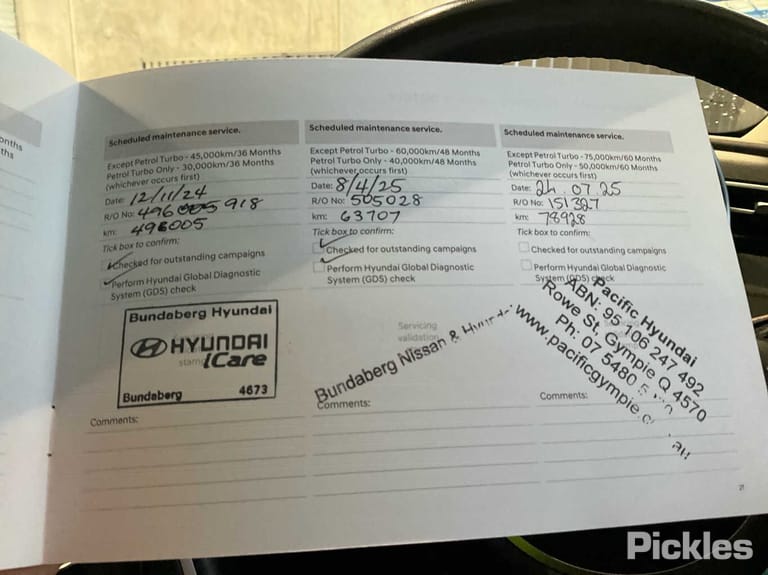 onths
ths
Scheduled maintenance service.
Except Petrol Turbo - 45,000km/36 Months
Petrol Turbo Only - 30,000km/36 Months
(whichever occurs first)
Date: 12/11/24
R/O No: 496 918
km: 496005
Tick box to confirm:
Checked for outstanding campaigns
Perform Hyundai Global Diagnostic
System (GDS) check
Bundaberg Hyundai
HYUNDAI
iCare
stamp
Bundaberg 4673
Comments:
Scheduled maintenance service.
Except Petrol Turbo - 60,000km/48 Months
Petrol Turbo Only - 40,000km/48 Months
(whichever occurs first)
Date: 8/4/25
R/O No: 505028
km: 63707
Tick box to confirm:
Checked for outstanding campaigns
Perform Hyundai Global Diagnostic
System (GDS) check
Servicing
validation
Bundaberg Nissan &
Comments:
Scheduled maintenance service.
Except Petrol Turbo - 75,000km/60 Months
Petrol Turbo Only - 50,000km/60 Months
(whichever occurs first)
Date: 24.07.25
R/O No: 151327
km: 78928
Tick box to confirm:
Checked for outstanding campaigns
Perform Hyundai Global Diagnostic
System (GDS) check
Pacific Hyundai
ABN: 95 106 247 492
Rowe St, Gympie Q 4570
Ph: 07 5480
www.pacificgympie.
Comments:
21
Pickles